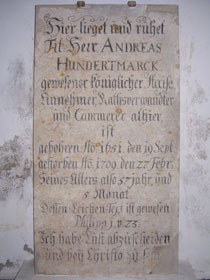 Hier lieget und ruhet
Tit. Herr ANDREAS
HUNDERTMARCK
gewesener Königlicher Kreiß
Einnehmer Rathsverwandter
und Cammerer alhier
ist
gebohren Ao. 1651 den 19 Sept
gestorben Ao. 1709 den 27 Febr.
Seines Alters also 57 jahr, und
5 Monat.
Dessen Leichen-Text ist gewesen
1 v 23
Ich habe Lust abzuscheiden
und bey Christo zu